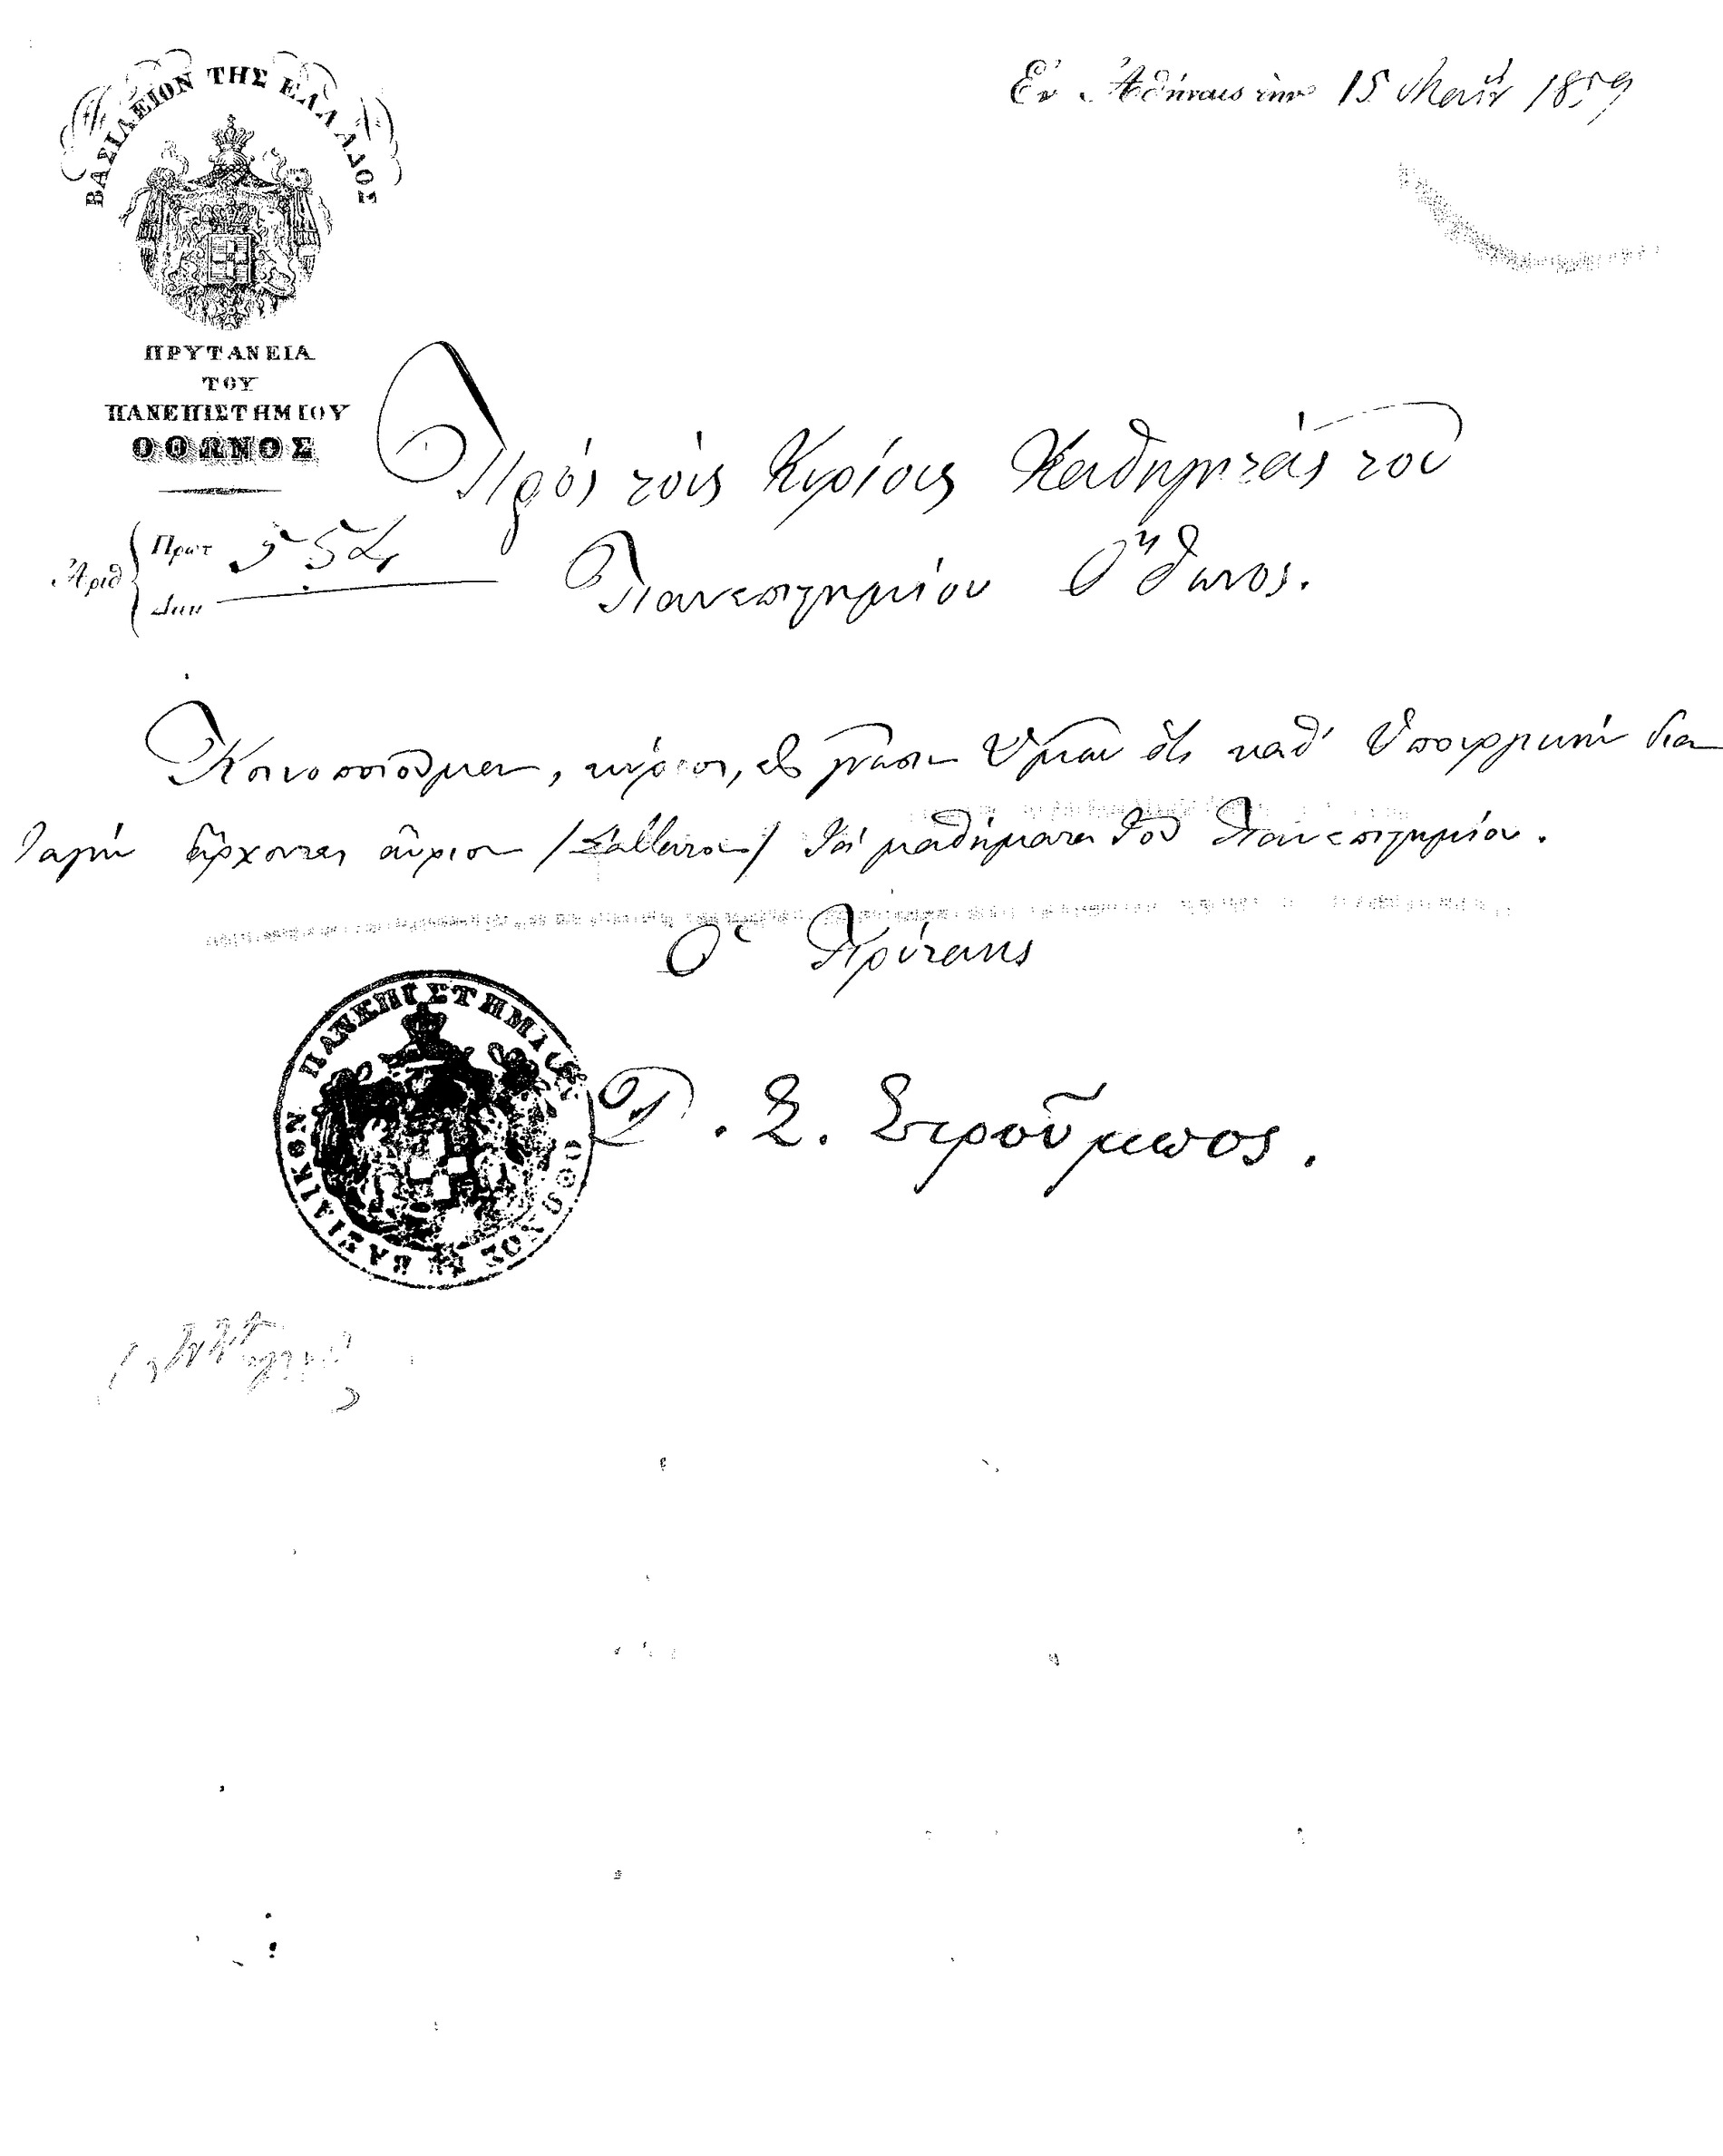 ΒΑΣΙΛΕΙΟΝ ΤΗΣ ΕΛΛΑΔΟΣ
Ἐν Ἀθήναις την 15 Μαΐου 1859
ΠΡΥΤΑΝΕΙΑ
ΤΟΥ
ΠΑΝΕΠΙΣΤΗΜΙΟΥ
ΟΘΩΝΟΣ
Ἀριθ
Πρωτ
Διεκ
Πρός τούς Κυρίους Καθηγητάς του
Πανεπιστημίου Ὄθωνος.
Κοινοποιοῦμεν, κύριοι, εἰς γνῶσιν Ὑμῶν ὅτι καθ' Ὑπουργικήν δια
ταγήν ἄρχονται αὔριον /Σάββατον/ τά μαθήματα τοῦ Πανεπιστημίου.
Ὁ Πρύτανις
ΠΑΝΕΠΙΣΤΗΜΙΟΝ ΟΘΩΝΟΣ ΒΑΣΙΛΙΚΟΝ
Δ. Σ. Στροῦμπος.